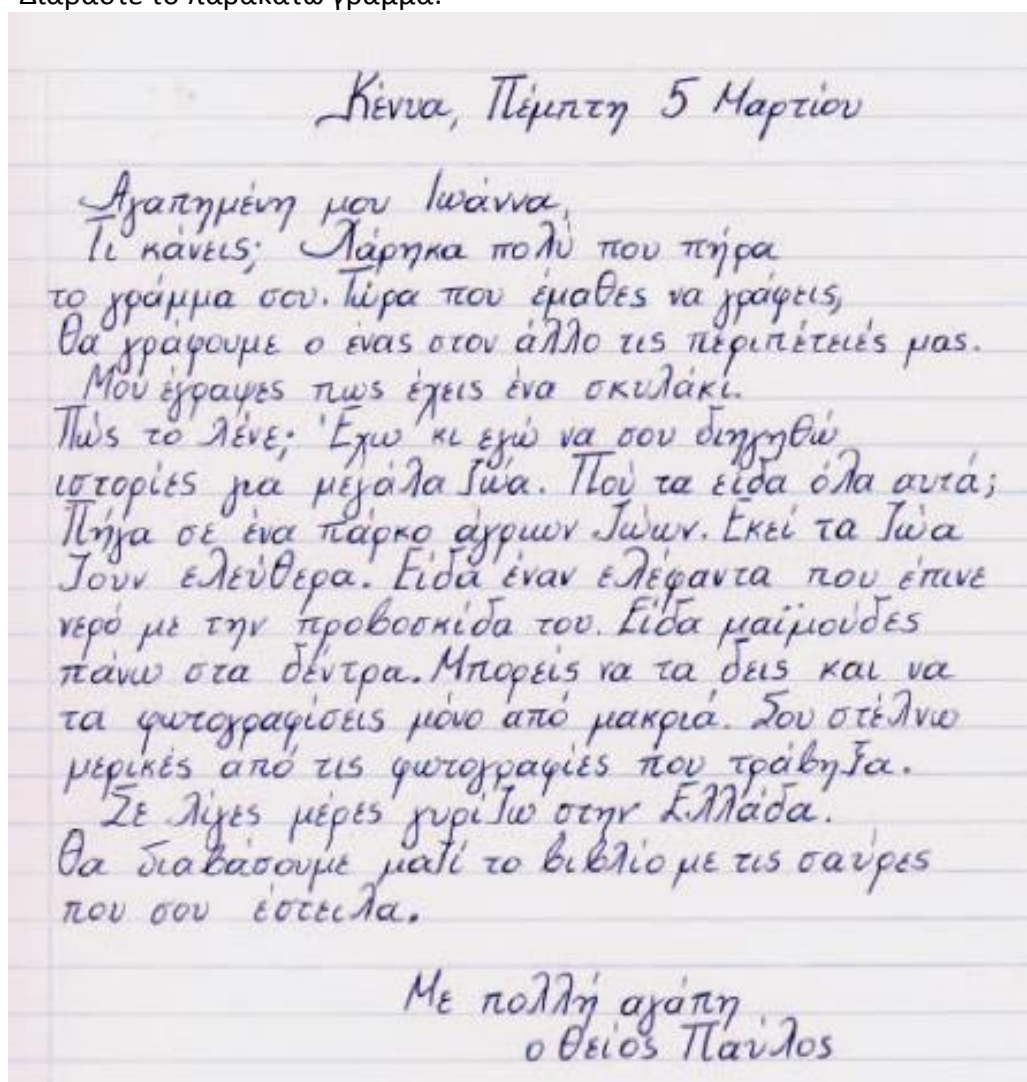 Διαβάστε το παρακάτω γράμμα.
Κένυα, Πέμπτη 5 Μαρτίου
Αγαπημένη μου Ιωάννα,
Τι κάνεις; Χάρηκα πολύ που πήρα
το γράμμα σου. Τώρα που έμαθες να γράφεις,
θα γράφουμε ο ένας στον άλλο τις περιπέτειές μας.
Μου έγραψες πως έχεις ένα σκυλάκι.
Πώς το λένε; Έχω κι εγώ να σου διηγηθώ
ιστορίες για μεγάλα ζώα. Πού τα είδα όλα αυτά;
Πήγα σε ένα πάρκο άγριων ζώων. Εκεί τα ζώα
ζουν ελεύθερα. Είδα έναν ελέφαντα που έπινε
νερό με την προβοσκίδα του. Είδα μαϊμούδες
πάνω στα δέντρα. Μπορείς να τα δεις και να
τα φωτογραφίσεις μόνο από μακριά. Σου στέλνω
μερικές από τις φωτογραφίες που τράβηξα.
Σε λίγες μέρες γυρίζω στην Ελλάδα.
Θα διαβάσουμε μαζί το βιβλίο με τις σαύρες
που σου έστειλα.
Με πολλή αγάπη
ο θείος Παύλος